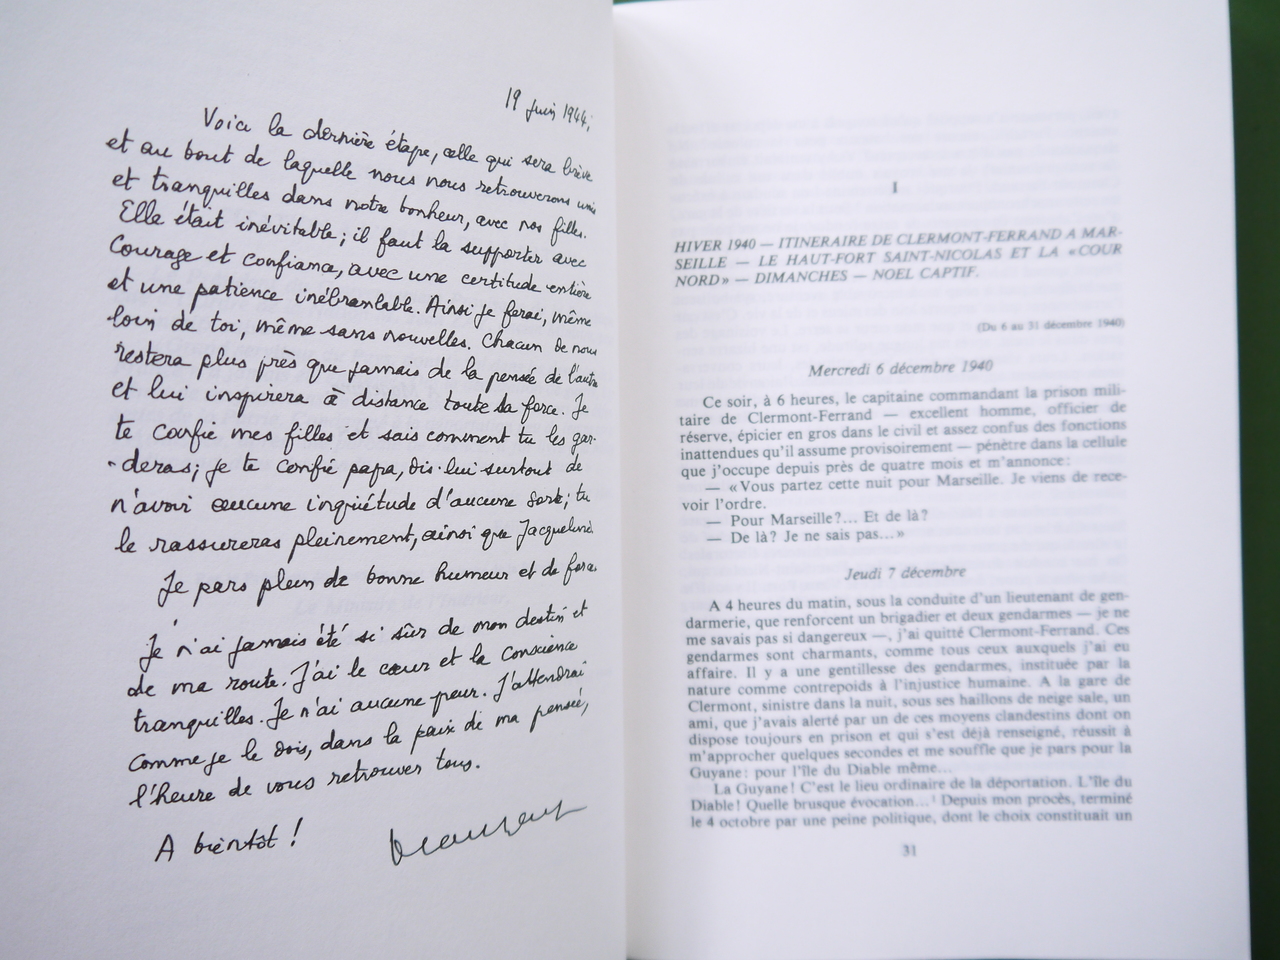 19 Juin 1944,
Voici la dernière étape, celle qui sera brève
et au bout de laquelle nous nous retrouverons unis
et tranquilles dans notre bonheur, avec nos filles.
Elle était inévitable ; il faut la supporter avec
courage et confiance, avec une certitude entière
et une patience inébranlable. Ainsi je ferai, même
loin de toi, même sans nouvelles. Chacun de nous
restera plus près que jamais de la pensée de l'autre
et lui inspirera à distance toute sa force. Je
te confie mes filles et sais comment tu les gar-
-deras ; je te confie papa, dis-lui surtout de
n'avoir aucune inquiétude d'aucune sorte ; tu
le rassureras pleinement, ainsi que Jacqueline.
Je pars plein de bonne humeur et de force.
Je n'ai jamais été si sûr de mon destin et
de ma route. J'ai le cœur et la conscience
tranquilles. Je n'ai aucune peur. J'attendrai
comme je le dois, dans la paix de ma pensée,
l'heure de vous retrouver tous.
A bientôt !
I
HIVER 1940 — ITINERAIRE DE CLERMONT-FERRAND A MAR-
SEILLE — LE HAUT-FORT SAINT-NICOLAS ET LA «COUR
NORD» — DIMANCHES — NOEL CAPTIF.
(Du 6 au 31 décembre 1940)
Mercredi 6 décembre 1940
Ce soir, à 6 heures, le capitaine commandant la prison mili-
taire de Clermont-Ferrand — excellent homme, officier de
réserve, épicier en gros dans le civil et assez confus des fonctions
inattendues qu'il assume provisoirement — pénètre dans la cellule
que j'occupe depuis près de quatre mois et m'annonce:
— «Vous partez cette nuit pour Marseille. Je viens de rece-
voir l'ordre.
— Pour Marseille?... Et de là?
— De là? Je ne sais pas...»
Jeudi 7 décembre
A 4 heures du matin, sous la conduite d'un lieutenant de gen-
darmerie, que renforcent un brigadier et deux gendarmes — je ne
me savais pas si dangereux —, j'ai quitté Clermont-Ferrand. Ces
gendarmes sont charmants, comme tous ceux auxquels j'ai eu
affaire. Il y a une gentillesse des gendarmes, instituée par la
nature comme contrepoids à l'injustice humaine. A la gare de
Clermont, sinistre dans la nuit, sous ses haillons de neige sale, un
ami, que j'avais alerté par un de ces moyens clandestins dont on
dispose toujours en prison et qui s'est déjà renseigné, réussit à
m'approcher quelques secondes et me souffle que je pars pour la
Guyane: pour l'île du Diable même...
La Guyane! C'est le lieu ordinaire de la déportation. L'île du
Diable! Quelle brusque évocation...! Depuis mon procès, terminé
le 4 octobre par une peine politique, dont le choix constituait un
31